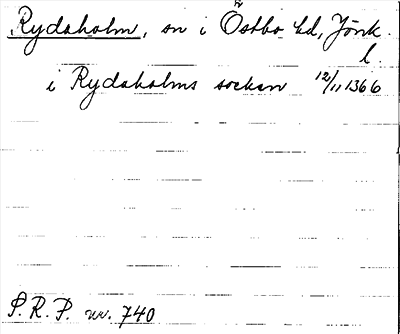 Rydaholm, sn i Östbo hd, Jönk.
l.
i Rydaholms socken 12/11 1366
S.R.P. nr. 740